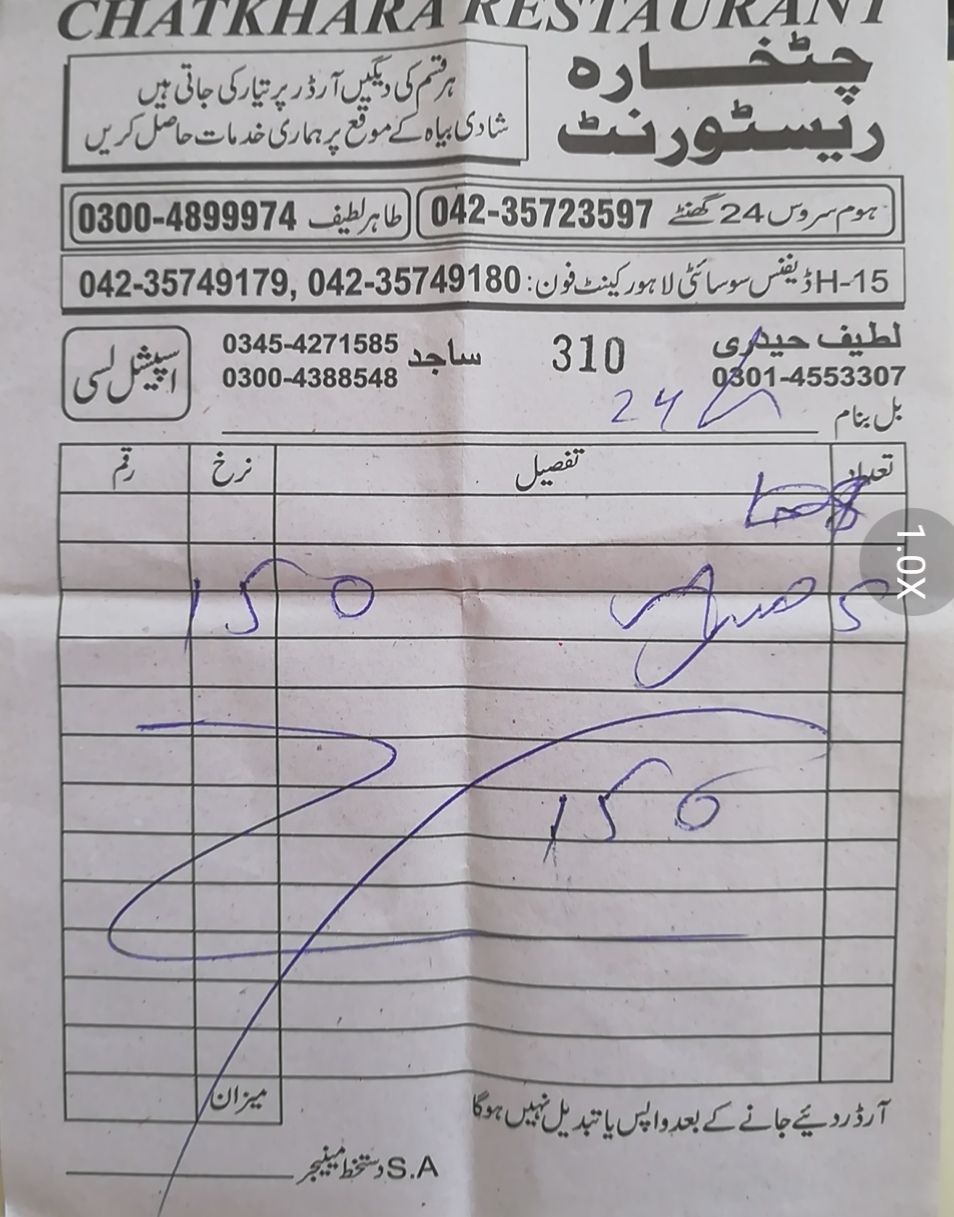 CHATKHARA RESTAURANT
چٹخارہ
ریسٹورنٹ
ہر قسم کی دیگیں آرڈر پر تیار کی جاتی ہیں
شادی بیاہ کے موقع پر ہماری خدمات حاصل کریں
ہوم سروس 24 گھنٹے 042-35723597
طاہر لطیف 0300-4899974
H-15 ڈیفنس سوسائٹی لاہور کینٹ فون: 042-35749180, 042-35749179
لطیف حیدری
0301-4553307
310
ساجد 0345-4271585
0300-4388548
اسپیشل لسی
بل بنام
24
تعداد تفصیل نرخ رقم
5 150
150
میزان
آرڈر دئیے جانے کے بعد واپس یا تبدیل نہیں ہوگا
S.A دستخط مینیجر
1.0X